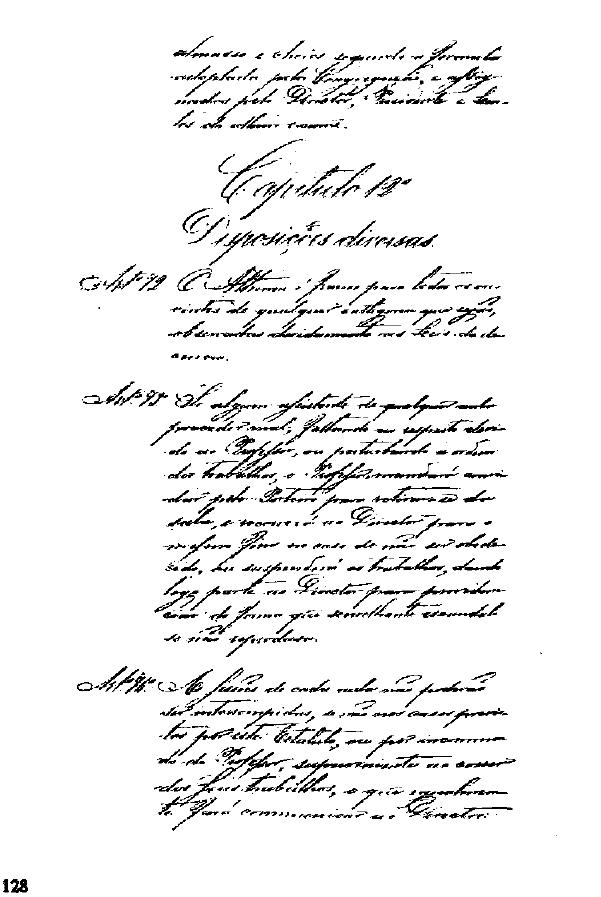 e cheios segundo a formula
adoptada pela Congregação, e assig-
nados pelo Director, Secretario e Len-
tes do ultimo exame.
Capitulo 12º
Disposições diversas.
Artº 92 O Atheneo é franco para todas as
de qualquer que sejão,
observadas devidamente as Leis da de-
cencia.
Artº 93 Se algum assistente de qualquer aula
proceder mal, faltando ao respeito devi-
do ao Professor, ou perturbando a ordem
dos trabalhos, o Professor mandará avi-
dar pelo Porteiro para retirar-se da
sala, e recorrerá ao Director para o
mesmo fim no caso de não ser obede-
cido, ou suspenderá os trabalhos, dando
logo parte ao Director para providen-
ciar de forma que semelhante escandalo
se não reproduza.
Artº 94 As lições de cada aula não poderão
ser interrompidas, se não nos casos previs-
tos por este Estatuto, ou por incommo-
do do Professor,
dos seus trabalhos, o que
te fará communicar ao Director.
128